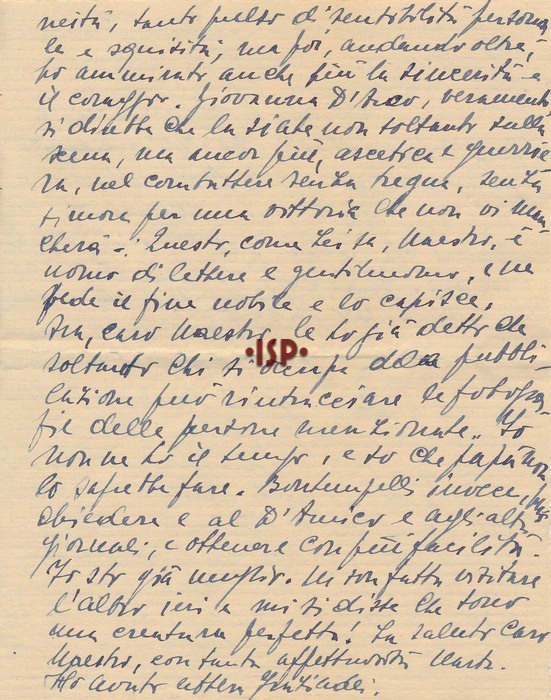 nestà, tanto pulso di sensibilità persona
le e squisità; ma poi, andando oltre,
ho ammirato anche più la sincerità e
il coraggio. Giovanna D'Arco, veramente
si direbbe che la siate non soltanto sulla
scena, ma ancor più, ascetica e guerrie
ra, nel combattere senza tregua, senza
timore per una vittoria che non vi man
cherà -. Questo, come Lei sa, Maestro, è
uomo di lettere e gentiluomo, e ne
vede il fine nobile e lo capisce.
Ma, caro Maestro, le ho già detto che
•ISP•
soltanto chi si occupa della pubbli
cazione può rintracciare le fotogra
fie delle persone menzionate. Io
non ne ho il tempo, e so che papà non
lo saprebbe fare. Bontempelli invece, può
chiedere e al D'Amico e agli altri
giornali, e ottenere con più facilità.
Io sto già meglio. Mi son fatta visitare
l'altro ieri e mi si disse che sono
una creatura perfetta! La saluto caro
Maestro, con tanta affettuosità Marta.
Ho avuto lettera Graziadei.